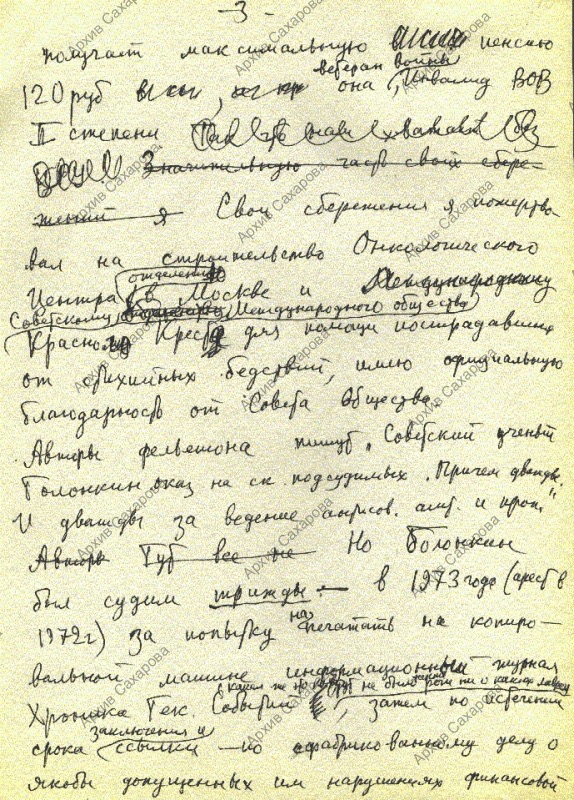 - 3 -
получает максимальную пенсию
120 руб, она, ветеран войны, Инвалид ВОВ
II степени
Значительную часть своих сбере-
жений я Свои сбережения я пожертво-
вал на строительство Онкологического
Центра в Москве и Международному
отделению
Советскому Международного общества
Красного Креста для помощи пострадавшим
от стихийных бедствий, имею официальную
благодарность от Совета Общества.
Авторы фельетона пишут "Советский ученый
Болонкин оказ на ск. подсудимых. Причем дважды.
И дважды за ведение антисов. агит. и проп."
Авторы Тут все же Но Болонкин
был судим трижды — в 1973 годе (арест в
1972 г) за попытку напечатать на копиро-
вальной машине информационный журнал
Хроника Тек. Событий, затем по истечении
срока заключения и ссылки — по сфабрикованному делу о
якобы допущенных им нарушениях финансовой